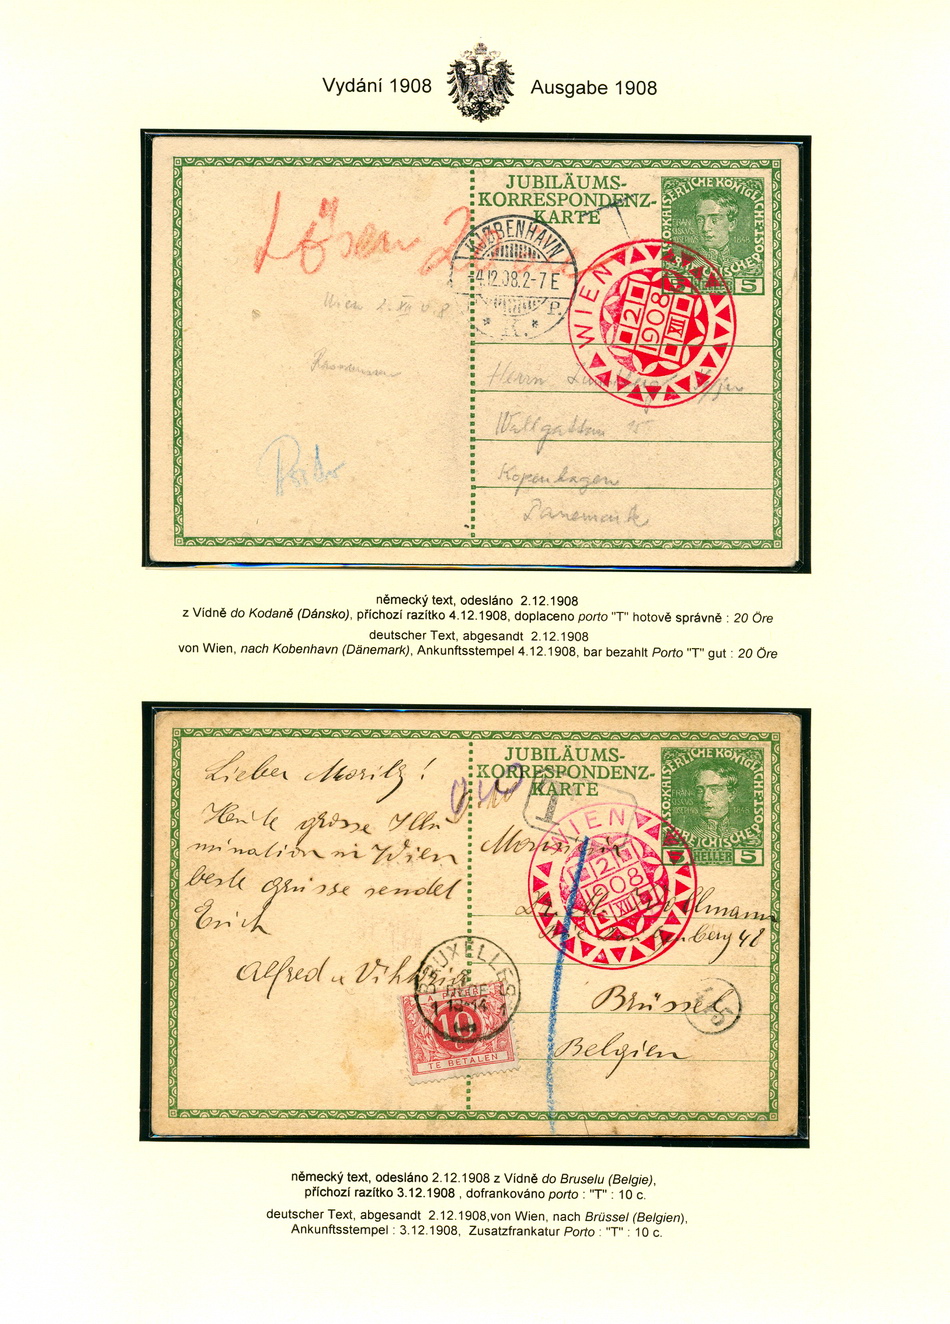 Vydání 1908 Ausgabe 1908
JUBILÄUMS-
KORRESPONDENZ-
KARTE
5 HELLER 5
Lösen
KJØBENHAVN
-4.12.08.2-7 E
P.
* K. *
WIEN
2
1908
XII
Wien 2. XII 08
Herrn
15
Kopenhagen
Danemark
Porto
německý text, odesláno 2.12.1908
z Vídně do Kodaně (Dánsko), příchozí razítko 4.12.1908, doplaceno porto "T" hotově správně : 20 Öre
deutscher Text, abgesandt 2.12.1908
von Wien, nach Kobenhavn (Dänemark), Ankunftsstempel 4.12.1908, bar bezahlt Porto "T" gut : 20 Öre
JUBILÄUMS-
KORRESPONDENZ-
KARTE
HELLER 5
T
WIEN
2
1908
XII
Lieber Moritz!
Heute grosse Illu
mination in Wien
beste Grüsse sendet
Erich
Alfred u.
48
Brüssel
Belgien
BRUXELLES
13-14
10
TE BETALEN
německý text, odesláno 2.12.1908 z Vídně do Bruselu (Belgie),
příchozí razítko 3.12.1908 , dofrankováno porto : "T" : 10 c.
deutscher Text, abgesandt 2.12.1908,von Wien, nach Brüssel (Belgien),
Ankunftsstempel : 3.12.1908, Zusatzfrankatur Porto : "T" : 10 c.